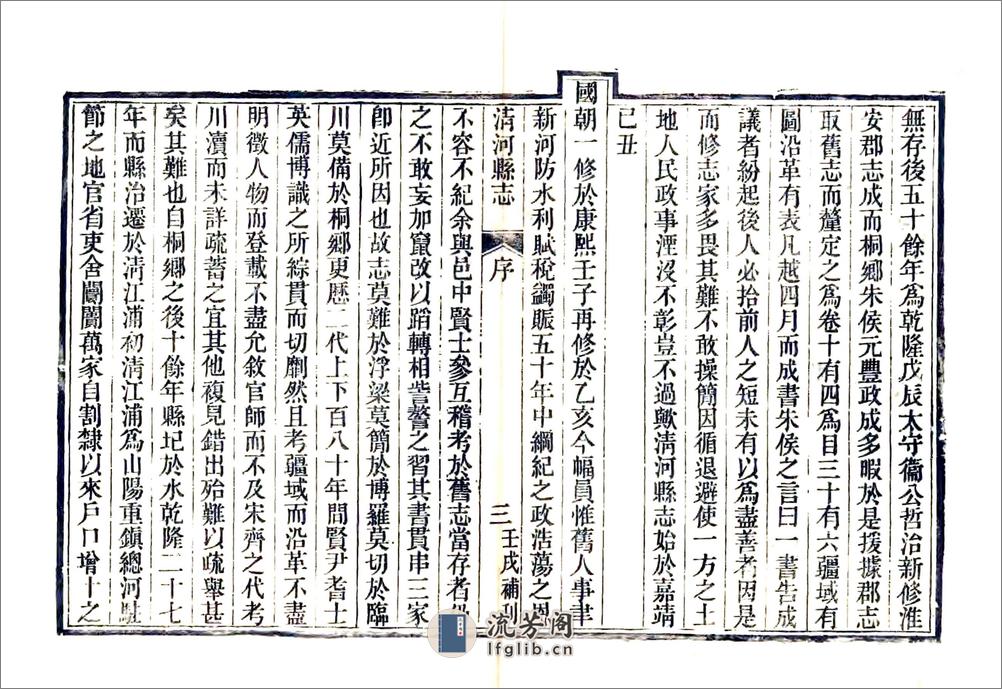 無存後五十餘年為乾隆戊辰太守衞公哲治新修淮
安郡志成而桐鄉朱侯元豐政成多暇於是援據郡志
取舊志而釐定之為卷十有四為目三十有六疆域有
圖沿革有表凡越四月而成書朱侯之言曰一書告成
議者紛起後人必拾前人之短未有以為盡善者因是
而修志家多畏其難不敢操簡因循退避使一方之土
地人民政事湮沒不彰豈不過歟清河縣志始於嘉靖
已丑
國朝一修於康熙壬子再修於乙亥今幅員惟舊人事聿
新河防水利賦稅蠲賑五十年中綱紀之政浩蕩之恩
清河縣志 序 三 壬戌補刊
不容不紀余與邑中賢士參互稽考於舊志當存者仍
之不敢妄加竄改以蹈轉相訾謷之習其書貫串三家
卽近所因也故志莫難於浮梁莫簡於博羅莫切於臨
川莫備於桐鄉更歷二代上下百八十年間賢尹耆士
英儒博識之所綜貫而切劘然且考疆域而沿革不盡
明徵人物而登載不盡允敘官師而不及宋齊之代考
川瀆而未詳疏蓄之宜其他複見錯出殆難以疏舉甚
矣其難也自桐鄉之後十餘年縣圮於水乾隆二十七
年而縣治遷於清江浦初清江浦為山陽重鎮總河駐
節之地官省吏舍闤闠萬家自割隸以來戶口增十之
流芳阁
lfglib.cn